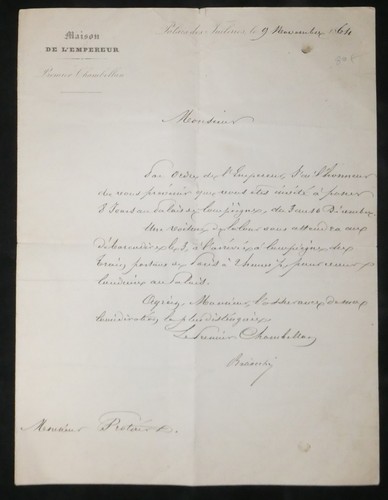 Maison
DE L'EMPEREUR
Premier Chambellan
Palais des Tuileries, le 9 Novembre 1864
Monsieur
Par ordre de l'Empereur, j'ai l'honneur
de vous prévenir que vous êtes invité à passer
8 jours au Palais de Compiègne, du 3 au 10 Décembre.
Une voiture de la Cour vous attendra au
débarcadère le 3, à l'arrivée à Compiègne du
train partant de Paris à 2 heures pour vous
conduire au Palais.
Agréez, Monsieur, l'assurance de ma
considération la plus distinguée.
Le Premier Chambellan
Monsieur